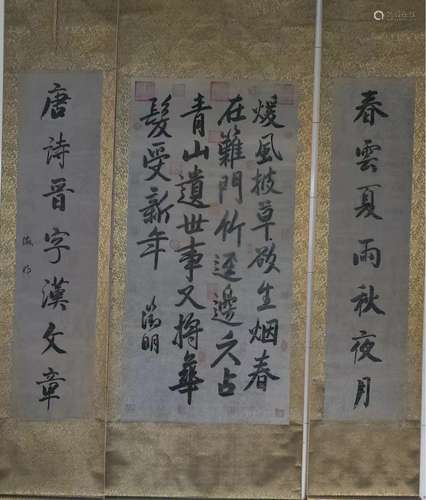 春雲夏雨秋夜月
煖風披草欲生烟春
在籬門竹逕邊久占
青山遺世事又將華
髮受新年
徵明
唐詩晉字漢文章
徵明